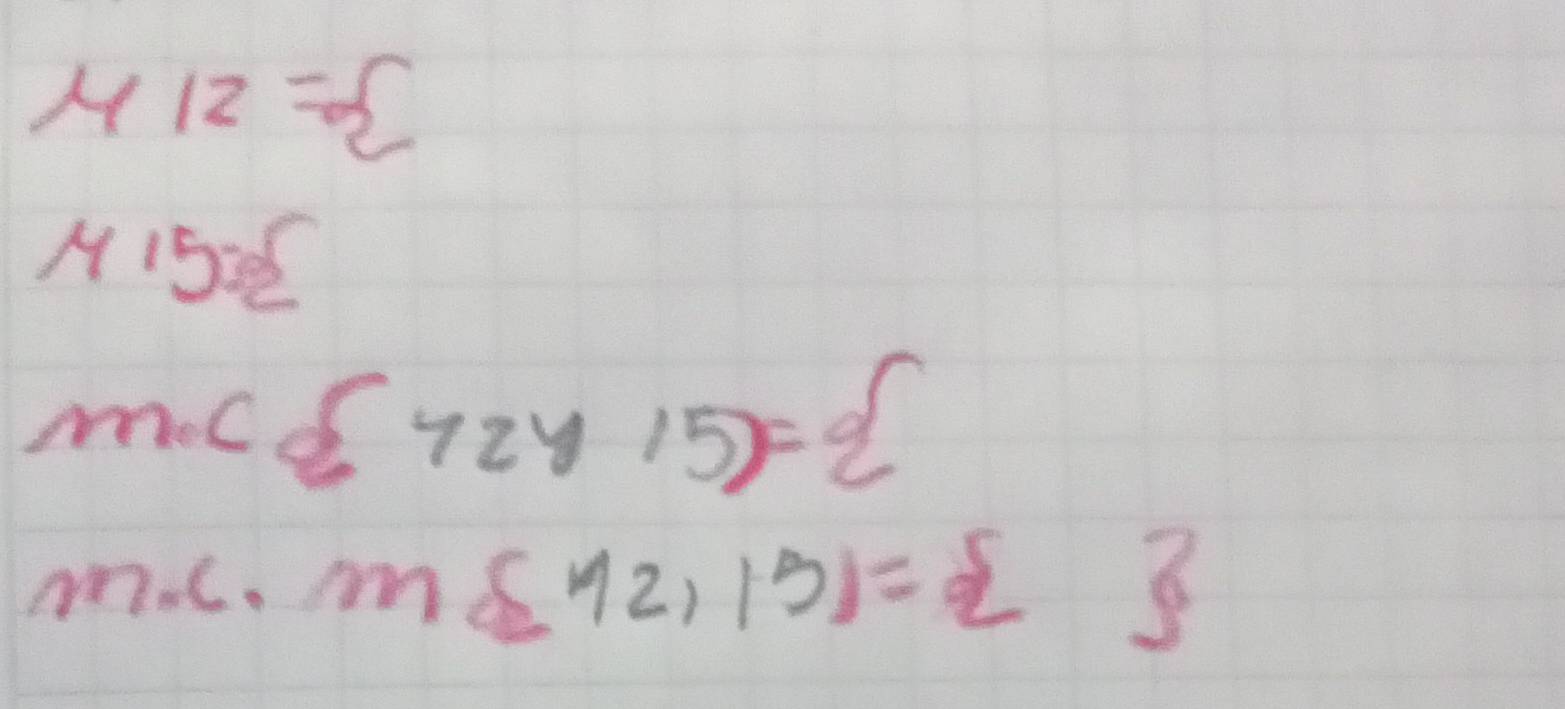 M 12 = {
M 15 = {
m.c { 12 y 15) = {
m.c. m { 12, 15) = { }